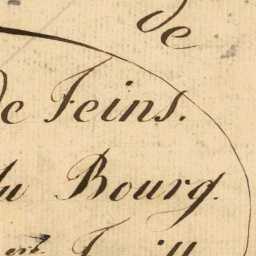 de
de Feins.
du Bourg.